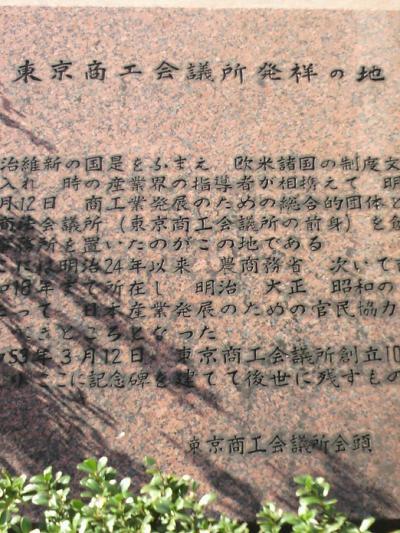 東京商工会議所発祥の地
治維新の国是をふまえ 欧米諸国の制度文
入れ 時の産業界の指導者が相携えて 明
月12日 商工業発展のための総合的団体と
商法会議所(東京商工会議所の前身)を
務所を置いたのがこの地である
には明治24年以来 農商務省 次いで
和18年まで所在し 明治 大正 昭和の
たって 日本産業発展のための官民協力
きところとなった
53年3月12日 東京商工会議所創立10
ここに記念碑を建てて後世に残すもの
東京商工会議所会頭